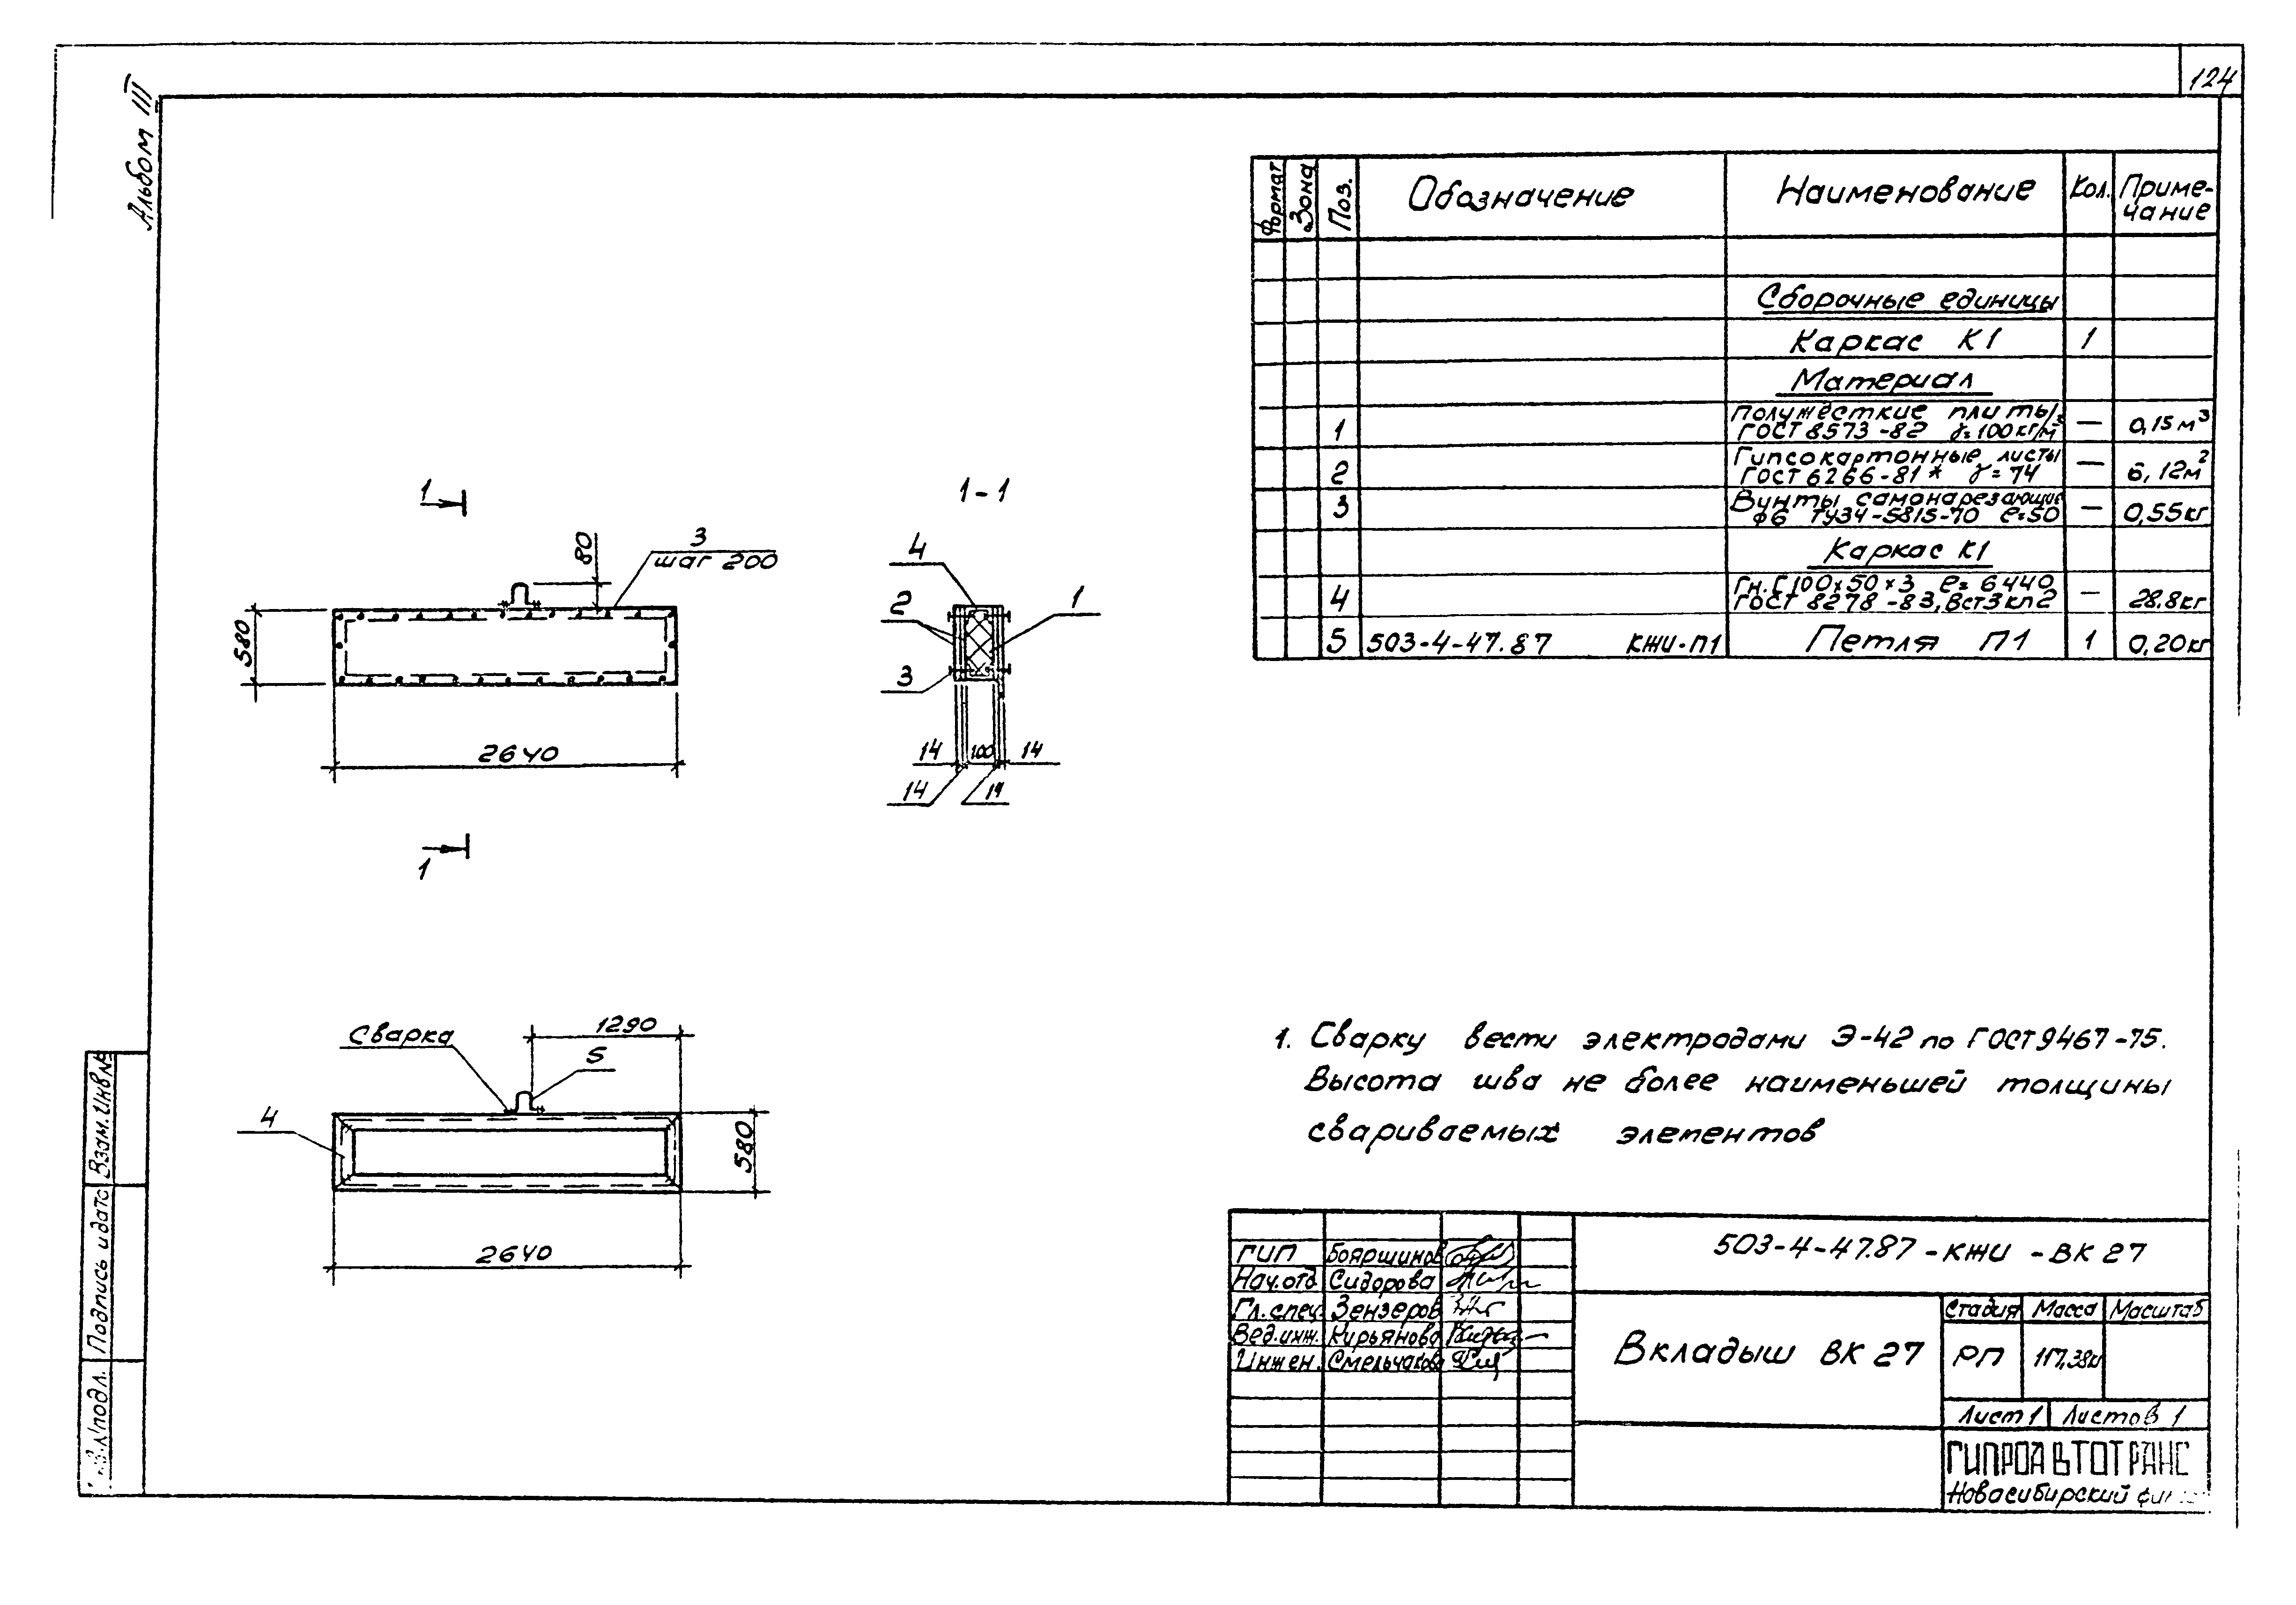 124
Альбом III
Формат Зона Поз. Обозначение Наименование Кол. Приме-
чание
Сборочные единицы
Каркас К1 1
Материал
1 Полужёсткие плиты ГОСТ 8573-82 γ=100кг/м³ — 0,15м³
2 Гипсокартонные листы ГОСТ 6266-81* γ=74 — 6,12м²
3 Винты самонарезающие ф6 ТУ34-5815-70 ℓ=50 — 0,55кг
Каркас К1
4 Гн.С 100×50×3 ℓ=6440 ГОСТ 8278-83, Вст3кп2 — 28.8кг
5 503-4-47.87 КЖИ-П1 Петля П1 1 0,20кг
1
1-1
3
шаг 200
80
580
2640
1
4
2
1
3
14 100 14
14 14
Сварка
1290
5
4
580
2640
1. Сварку вести электродами Э-42 по ГОСТ 9467-75.
Высота шва не более наименьшей толщины
свариваемых элементов
503-4-47.87-КЖИ-ВК 27
ГИП Бояршинов
Нач.отд Сидорова
Гл.спец. Зензеров
Вед.инж. Кирьянова
Инжен. Смельчаков
Вкладыш ВК 27
Стадия Масса Масштаб
РП
Лист 1 Листов 1
ГИПРОАВТОТРАНС
Новосибирский
Взам.Инв.№
Подпись и дата
№подл.